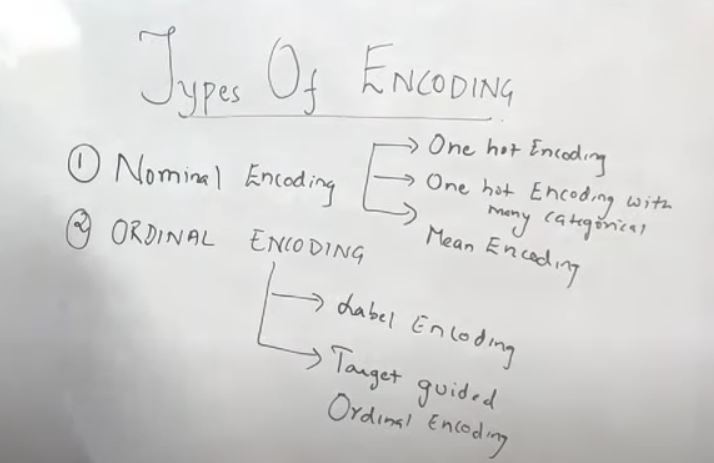 Types Of ENCODING
① Nominal Encoding
→ One hot Encoding
→ One hot Encoding with
many categorical
→ Mean Encoding
② ORDINAL ENCODING
→ Label Encoding
→ Target guided
Ordinal Encoding